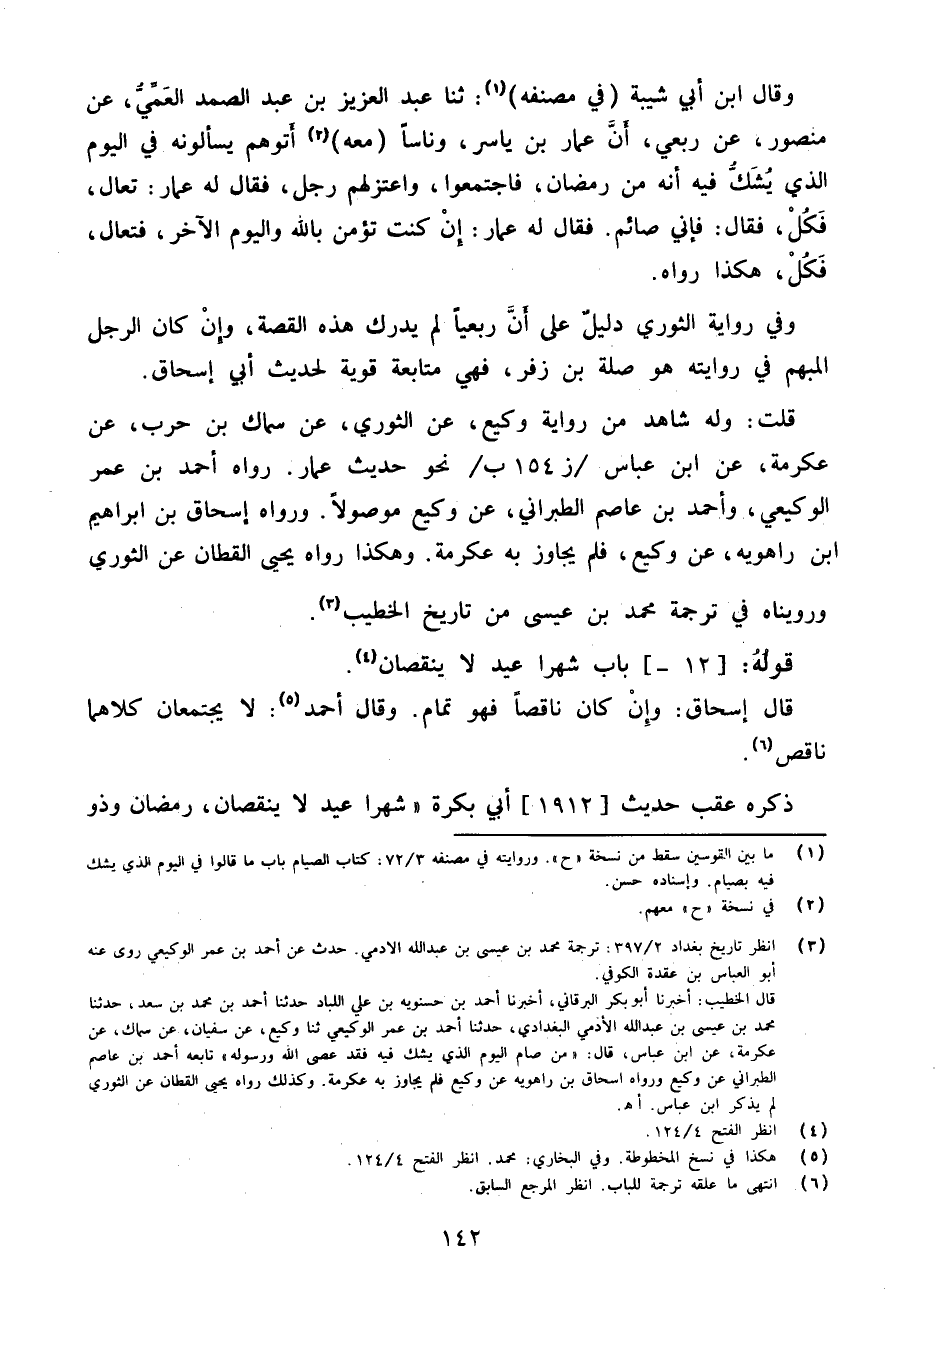 وقال ابن أبي شيبة (في مصنفه)(١): ثنا عبد العزيز بن عبد الصمد العَمِّيُّ، عن
منصور، عن ربعي، أَنَّ عمار بن ياسر، وناساً (معه)(٢) أَتوهم يسألونه في اليوم
الذي يُشَكُّ فيه أنه من رمضان، فاجتمعوا، واعتزلهم رجل، فقال له عمار: تعال،
فَكُلْ، فقال: فإني صائم. فقال له عمار: إِنْ كنت تؤمن بالله واليوم الآخر، فتعال،
فَكُلْ، هكذا رواه.
وفي رواية الثوري دليلٌ على أَنَّ ربعياً لم يدرك هذه القصة، وإِنْ كان الرجل
المبهم في روايته هو صلة بن زفر، فهي متابعة قوية لحديث أبي إسحاق.
قلت: وله شاهد من رواية وكيع، عن الثوري، عن سماك بن حرب، عن
عكرمة، عن ابن عباس /ز ١٥٤ ب/ نحو حديث عمار. رواه أحمد بن عمر
الوكيعي، وأحمد بن عاصم الطبراني، عن وكيع موصولاً. ورواه إسحاق بن ابراهيم
ابن راهويه، عن وكيع، فلم يجاوز به عكرمة. وهكذا رواه يحيى القطان عن الثوري
ورويناه في ترجمة محمد بن عيسى من تاريخ الخطيب(٣).
قولُهُ: [١٢ ـ] باب شهرا عيد لا ينقصان(٤).
قال إسحاق: وإِنْ كان ناقصاً فهو تمام. وقال أحمد(٥): لا يجتمعان كلاهما
ناقص(٦).
ذكره عقب حديث [١٩١٢] أبي بكرة «شهرا عيد لا ينقصان، رمضان وذو
(١) ما بين القوسين سقط من نسخة «ح». وروايته في مصنفه ٧٢/٣: كتاب الصيام باب ما قالوا في اليوم الذي يشك
فيه بصيام. وإسناده حسن.
(٢) في نسخة «ح» معهم.
(٣) انظر تاريخ بغداد ٣٩٧/٢: ترجمة محمد بن عيسى بن عبدالله الادمي. حدث عن أحمد بن عمر الوكيعي روى عنه
أبو العباس بن عقدة الكوفي.
قال الخطيب: أخبرنا أبو بكر البرقاني، أخبرنا أحمد بن حسنويه بن علي اللباد حدثنا أحمد بن محمد بن سعد، حدثنا
محمد بن عيسى بن عبدالله الأدمي البغدادي، حدثنا أحمد بن عمر الوكيعي ثنا وكيع، عن سفيان، عن سماك، عن
عكرمة، عن ابن عباس، قال: «من صام اليوم الذي يشك فيه فقد عصى الله ورسوله» تابعه أحمد بن عاصم
الطبراني عن وكيع ورواه اسحاق بن راهويه عن وكيع فلم يجاوز به عكرمة. وكذلك رواه يحيى القطان عن الثوري
لم يذكر ابن عباس. أ هـ.
(٤) انظر الفتح ١٢٤/٤.
(٥) هكذا في نسخ المخطوطة. وفي البخاري: محمد. انظر الفتح ١٢٤/٤.
(٦) انتهى ما علقه ترجمة للباب. انظر المرجع السابق.
١٤٢